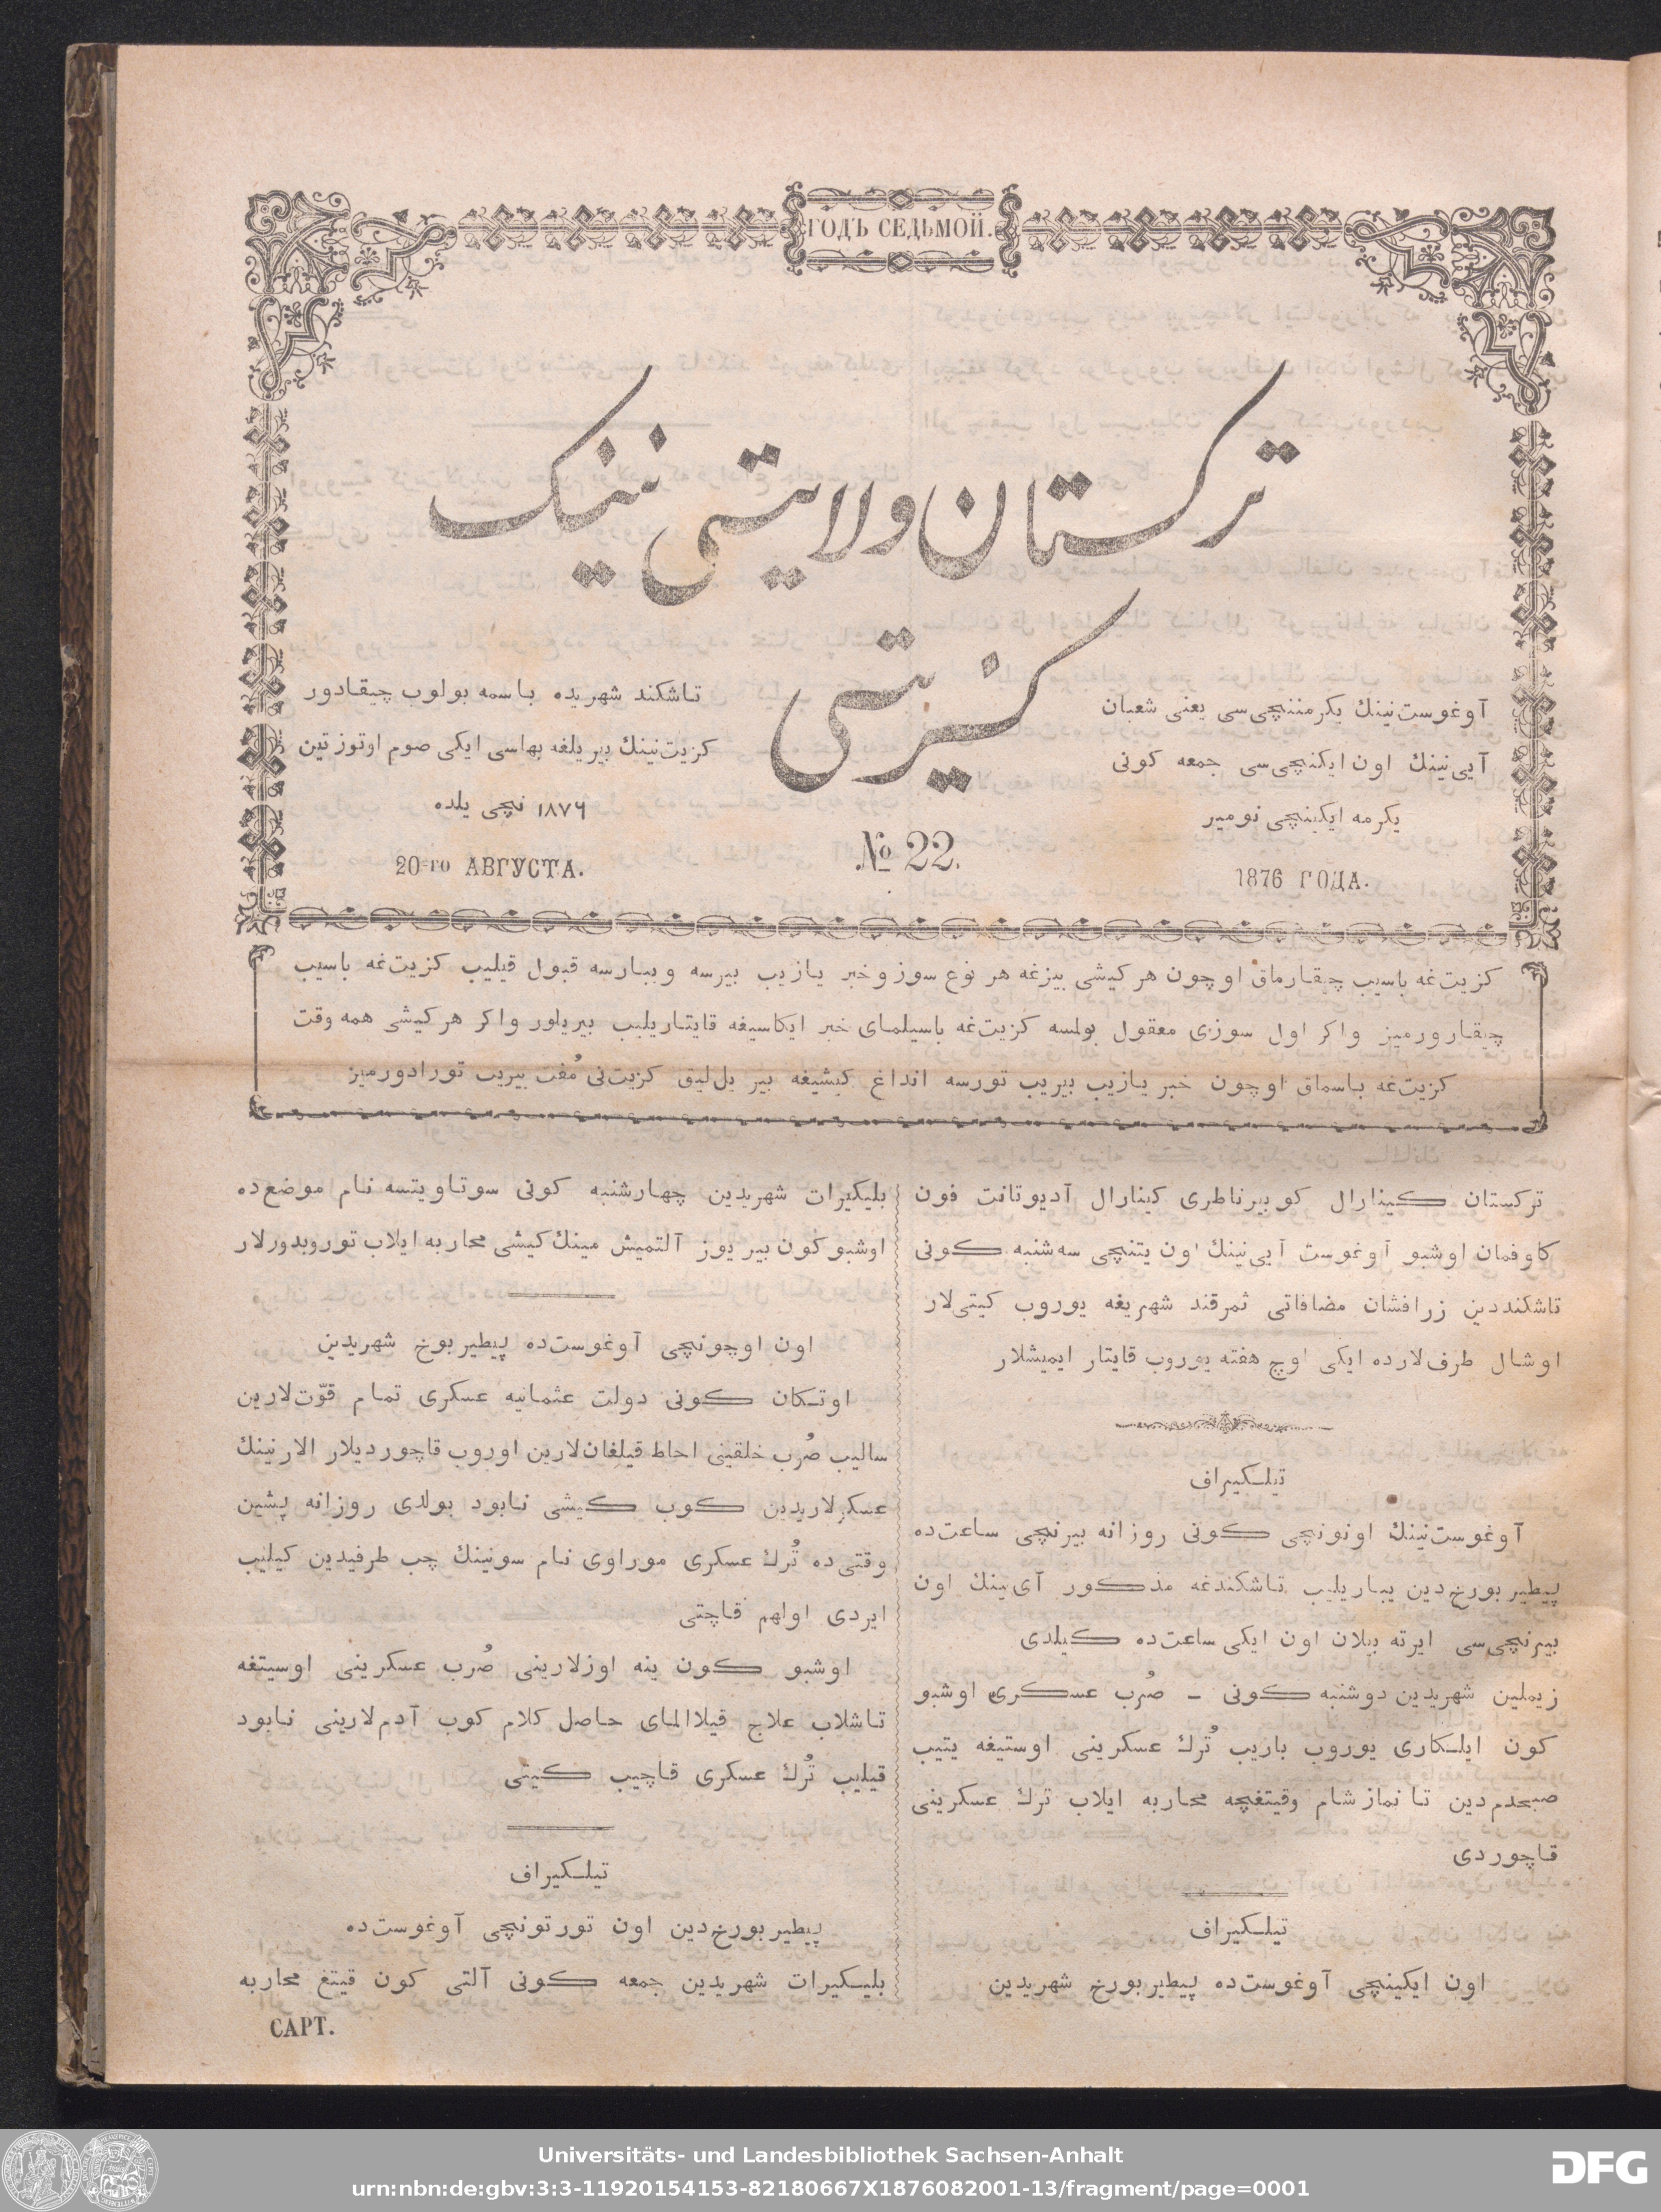 ГОДЪ СЕДЬМОЙ.
ترکستان ولایتی نینک
کزیتی
آوغوست‌نینك یکرمننچی‌سی یعنی شعبان
آیی‌نینك اون ایکنچی‌سی جمعه کونی
یکرمه ایکینچی نومیر
1876 ГОДА.
تاشکند شهریده باسمه بولوب چیقادور
کزیت‌نینك بیر یلغه بهاسی ایکی صوم اوتوز تین
۱۸۷۶ نچی یلده
20-го АВГУСТА.
№ 22.
کزیت‌غه باسیب چیقارماق اوچون هر کیشی بیزغه هر نوع سوز و خبر یازیب بیرسه و یبارسه قبول قیلیب کزیت‌غه باسیب
چیقارورمیز واکر اول سوزی معقول بولمسه کزیت‌غه باسیلمای خبر ایکاسیغه قایتاریلیب بیریلور واکر هر کیشی همه وقت
کزیت‌غه باسماق اوچون خبر یازیب بیریب تورسه انداغ کیشیغه بیر یل‌لیق کزیت‌نی مُفت بیریب تورادورمیز
ترکستان کینارال کوبیرناطری کینارال آدیوتانت فون
کاوفمان اوشبو آوغوست آیی‌نینك اون یتنچی سه‌شنبه کونی
تاشکنددین زرافشان مضافاتی ثمرقند شهریغه یوروب کیتی‌لار
اوشال طرف‌لارده ایکی اوچ هفته یوروب قایتار ایمیشلار
تیلکیراف
آوغوست‌نینك اونونچی کونی روزانه بیرنچی ساعت‌ده
پیطیربورخ‌دین یباریلیب تاشکندغه مذکور آی‌نینك اون
بیرنچی‌سی ایرته بیلان اون ایکی ساعت‌ده کیلدی
زیملین شهریدین دوشنبه کونی – صُرب عسکری اوشبو
کون ایلکاری یوروب باریب تُرك عسکرینی اوستیغه یتیب
صبحدم‌دین تا نماز شام وقیتغچه محاربه ایلاب ترك عسکرینی
قاچوردی
تیلکیراف
اون ایکینچی آوغوست‌ده پیطیربورخ شهریدین
بلیکیرات شهریدین چهارشنبه کونی سوتاویتسه نام موضع‌ده
اوشبو کون بیر یوز آلتمیش مینك کیشی محاربه ایلاب توروبدورلار
اون اوچونچی آوغوست‌ده پیطیربورخ شهریدین
اوتکان کونی دولت عثمانیه عسکری تمام قوّت‌لارین
سالیب صُرب خلقینی احاط قیلغان‌لارین اوروب قاچوردیلار الارنینك
عسکرلاریدین کوب کیشی نابود بولدی روزانه پشین
وقتی‌ده تُرك عسکری موراوی نام سونینك چب طرفیدین کیلیب
ایردی اولهم قاچتی
اوشبو کون ینه اوزلارینی صُرب عسکرینی اوسیتغه
تاشلاب علاج قیلاالمای حاصل کلام کوب آدم‌لارینی نابود
قیلیب تُرك عسکری قاچیب کیتی
تیلکیراف
پیطیربورخ‌دین اون تورتونچی آوغوست‌ده
بلیکیرات شهریدین جمعه کونی آلتی کون قیتغ محاربه
САРТ.
Universitäts- und Landesbibliothek Sachsen-Anhalt
urn:nbn:de:gbv:3:3-11920154153-82180667X1876082001-13/fragment/page=0001
DFG